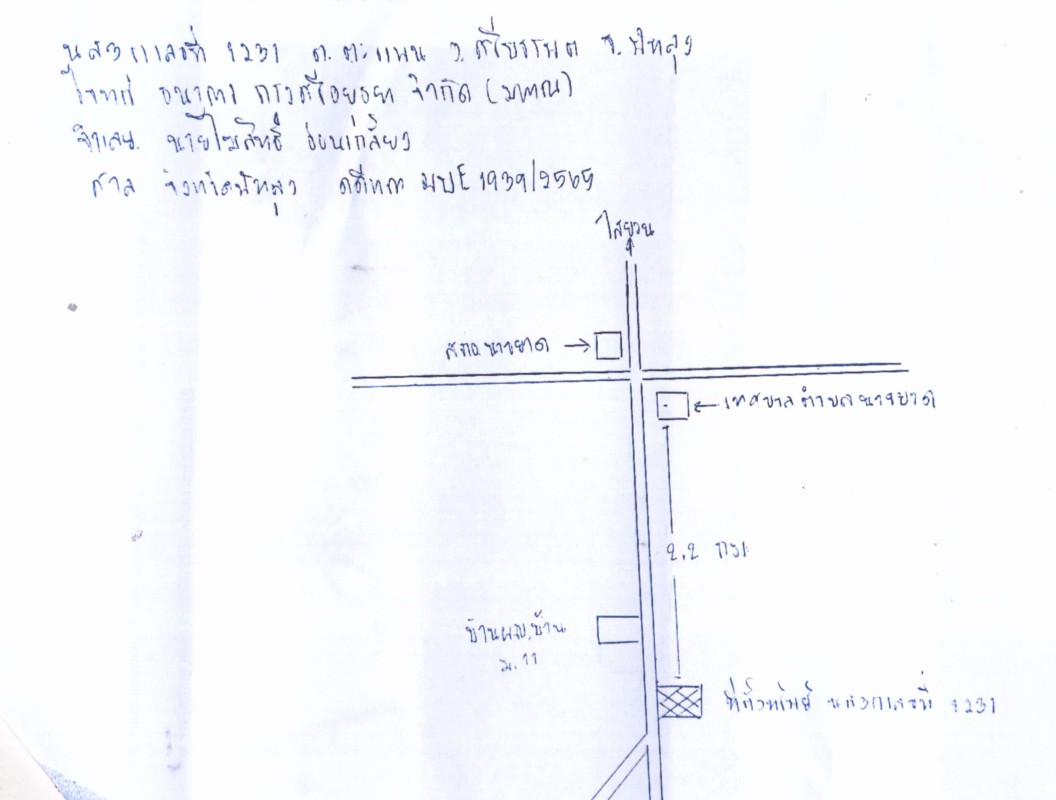 นส3ก เลขที่ 1231 ต.ตะแพน อ.ศรีบรรพต จ.พัทลุง
โจทก์ ธนาคาร กรุงศรีอยุธยา จำกัด (มหาชน)
จำเลย. นาย
ศาล จังหวัดพัทลุง คดีหมายเลข 1939/2565
ไสยวน
สภอ.นาขยาด →
← เทศบาลตำบลนาขยาด
2.2 กม
บ้านผญ.บ้าน
ม.11
ที่ตั้งทรัพย์ นส3ก เลขที่ 1231